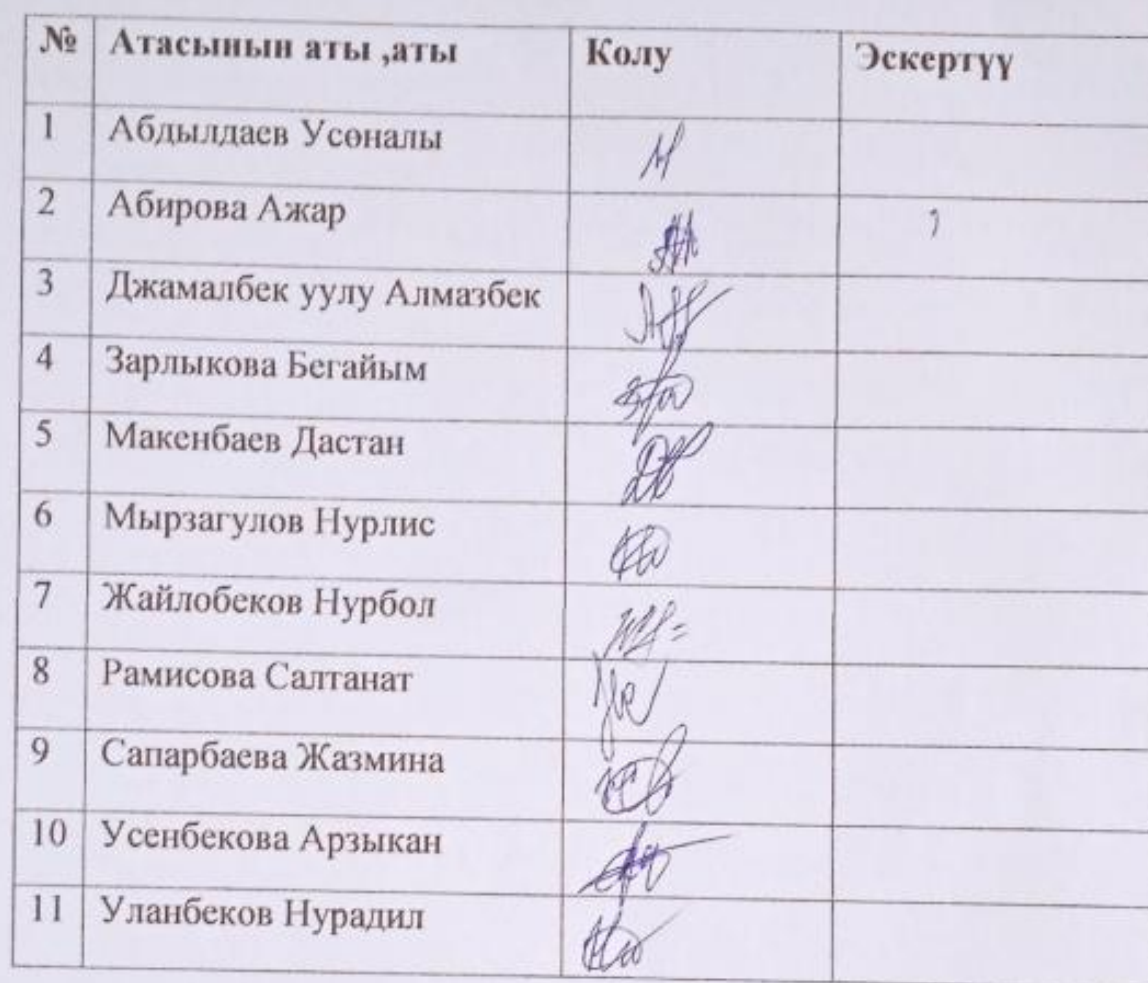 № Атасынын аты ,аты Колу Эскертүү
1 Абдылдаев Усөналы
2 Абирова Ажар
3 Джамалбек уулу Алмазбек
4 Зарлыкова Бегайым
5 Макенбаев Дастан
6 Мырзагулов Нурлис
7 Жайлобеков Нурбол
8 Рамисова Салтанат
9 Сапарбаева Жазмина
10 Усенбекова Арзыкан
11 Уланбеков Нурадил